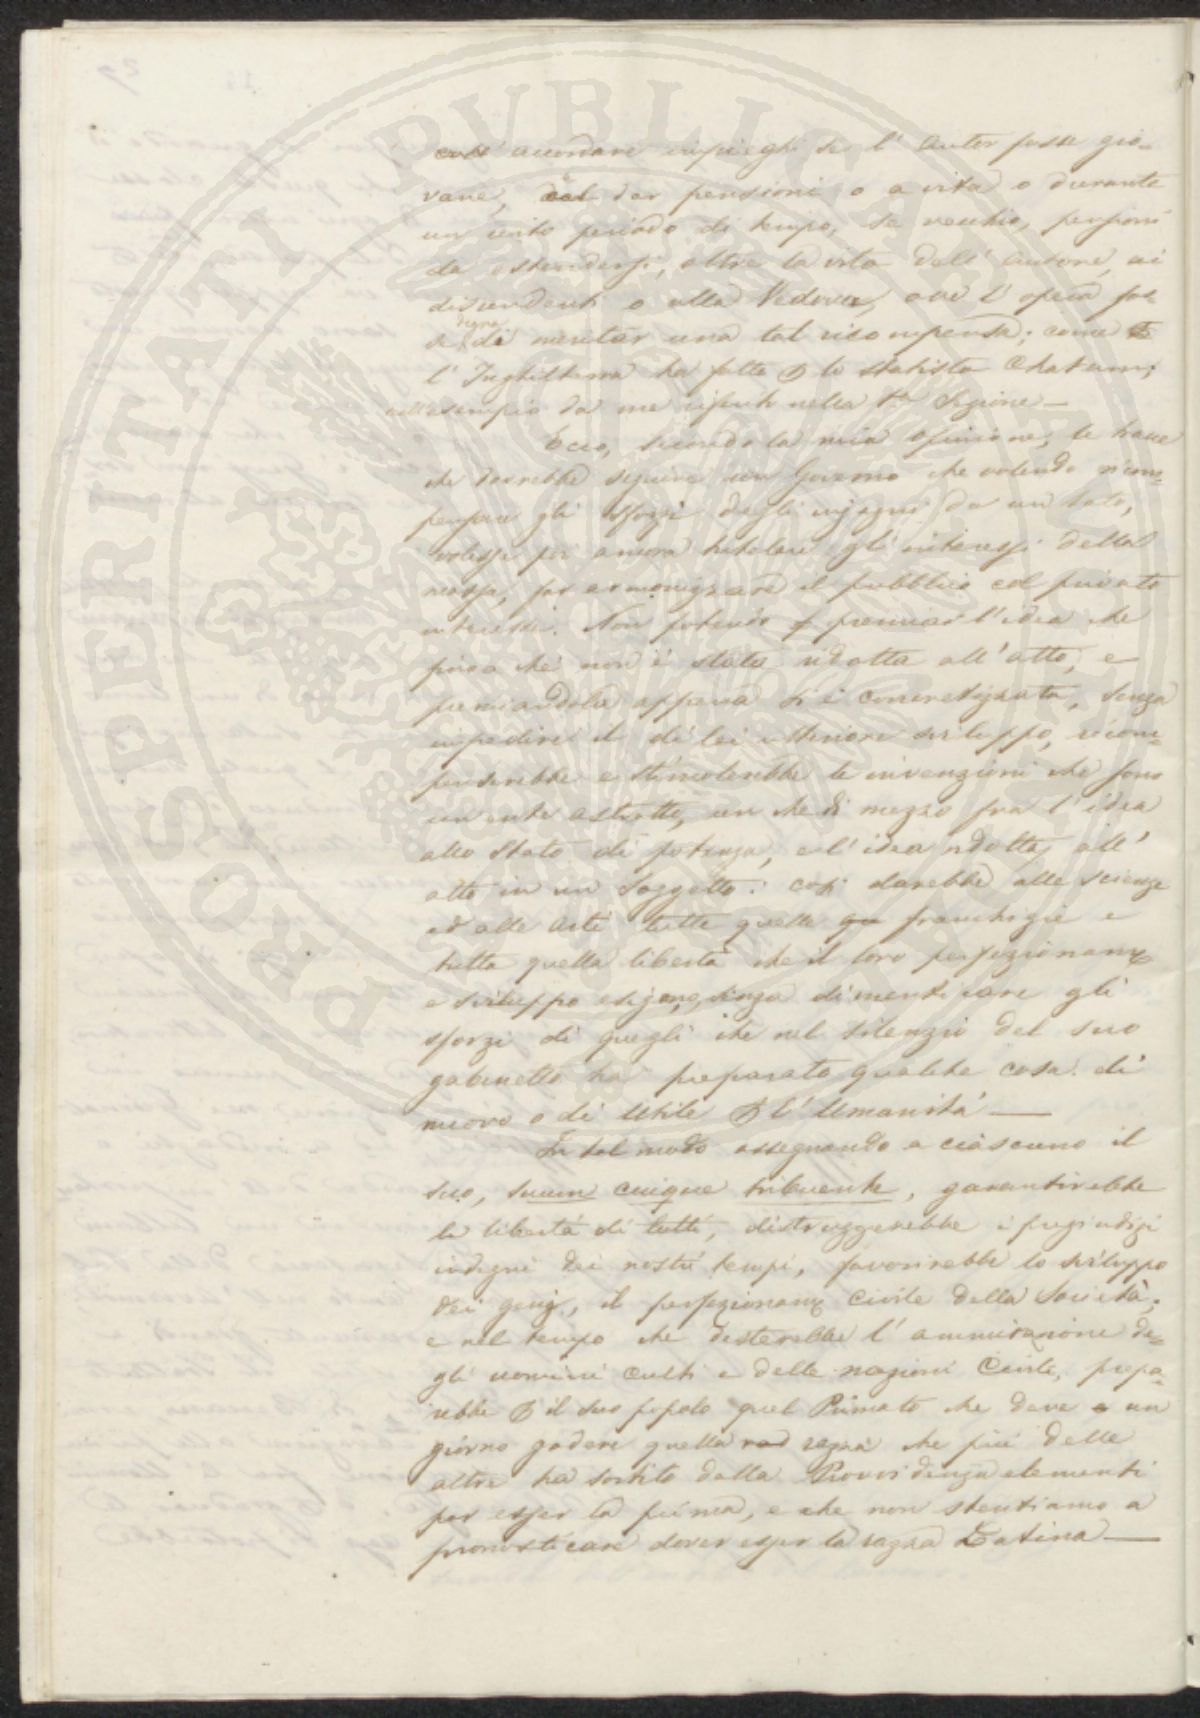 coll' accordare impieghi se l' autor fosse gio-
vane, dal dar pensioni o a vita o durante
un certo periodo di tempo, se vecchio, pensioni
da estendersi, oltre la vita dell' autore, ai
discendenti o alla Vedova, ove l' opera fos-
se degna di meritar una tal ricompensa; come
l' Inghilterra ha fatto p lo statista Chatam;
nell'esempio da me riferito nella 1ª Sezione —
Ecco, secondo la mia opinione, le tracce
che dovrebbe seguire un Governo che volendo ricom-
pensare gli sforzi degli ingegni da un lato,
volesse poi ancora tutelare gl' interessi della
massa, per armonizzare il pubblico col privato
interesse. Non potendo premiar l' idea che
poscia che non è stata ridotta all' atto, e
premiandola appena si è concretizzata, senza
impedire il di lei ulteriore sviluppo, ricom-
penserebbe e stimolerebbe le invenzioni che sono
un ente astratto, un che di mezzo fra l' idea
allo stato di potenza, e l' idea ridotta all'
atto in un soggetto: così darebbe alle scienze
ed alle arti tutte quelle qu franchigie e
tutta quella libertà che il loro perfezionam.º
e sviluppo esigono, senza dimenticare gli
sforzi di quegli che nel silenzio del suo
gabinetto ha preparato qualche cosa di
nuovo o di utile p l' Umanità —
In tal modo assegnando a ciascuno il
suo, suum cuique tribuente, garantirebbe
la libertà di tutti, distruggerebbe i pregiudizi
indegni dei nostri tempi, favorirebbe lo sviluppo
dei genj, il perfezionam.º civile della Società;
e nel tempo che desterebbe l' ammirazione de-
gli uomini culti e delle nazioni Civili, prepa-
rebbe p il suo popolo quel Primato che deve a un
giorno godere quella rad razza che più delle
altre ha sortito dalla Provvidenza elementi
per esser la prima, e che non stentiamo a
pronosticare dover esser la razza Latina —